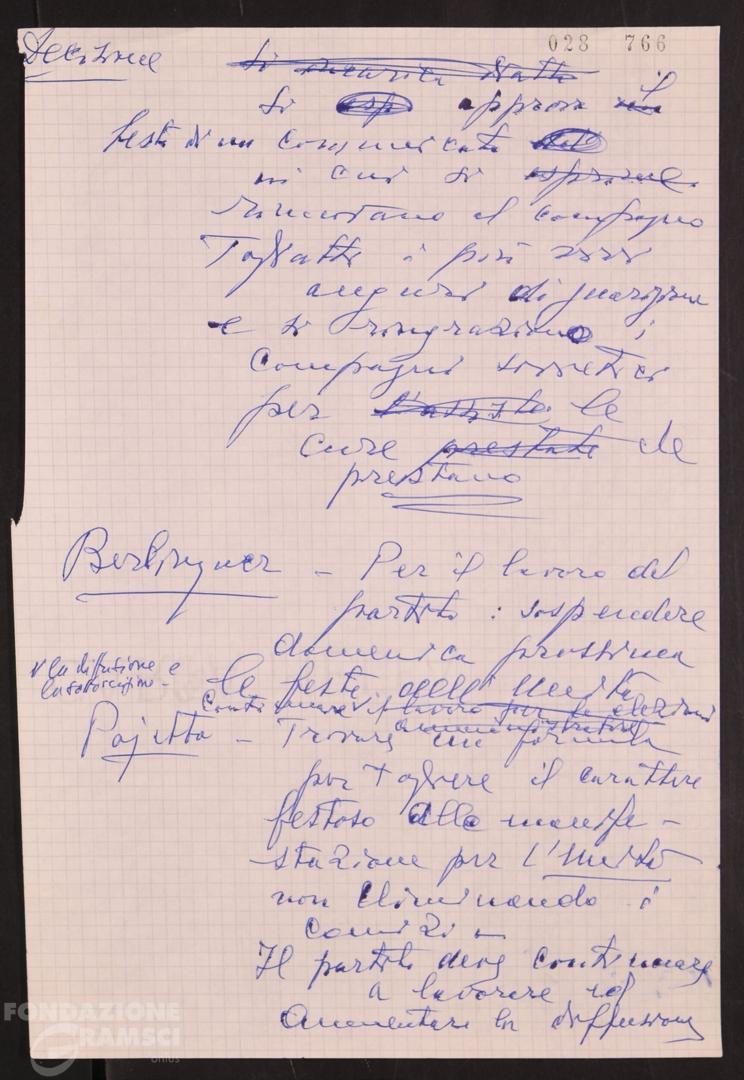 028 766
Decisione
Si incarica Natta
Si approva il
testo di un comunicato
in cui si
rinnovano al compagno
Togliatti i più vivi
auguri di guarigione
e si ringraziano i
compagni sovietici
per le
cure prestate che
prestano
Berlinguer – Per il lavoro del
partito: sospendere
domenica prossima
le feste dell'Unità
e la diffusione e
la sottoscrizione –
Continuare il lavoro per le elezioni
amministrative
Pajetta – Trovare una formula
per togliere il carattere
festoso alle manife-
stazione per l'Unità
non eliminando i
comizi –
Il partito deve continuare
a lavorare ed
aumentare la diffusione
FONDAZIONE
GRAMSCI
onlus